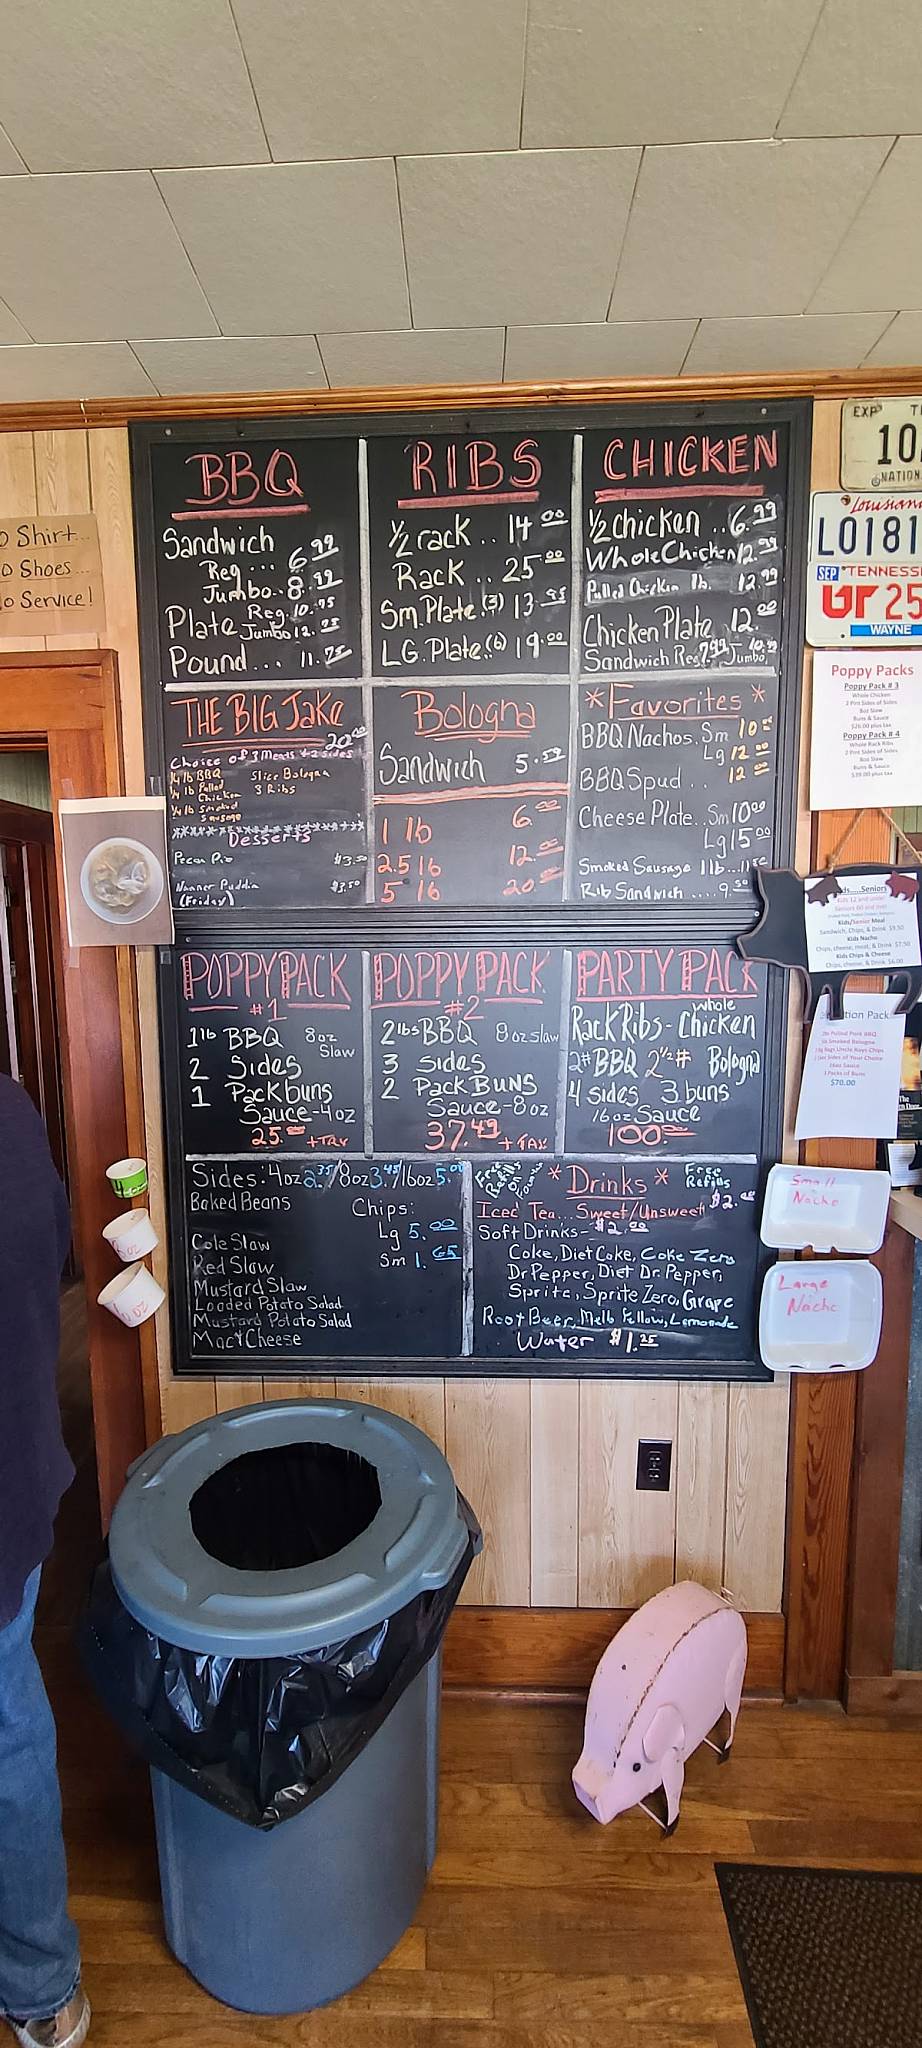 o Shirt...
o Shoes...
o Service!
BBQ
Sandwich
Reg... 6.99
Jumbo.. 8.99
Plate Reg. 10.75
Jumbo 12.75
Pound... 11.75
RIBS
1/2 rack .. 14.00
Rack .. 25.00
Sm. Plate.(3) 13.95
LG. Plate.(6) 19.00
CHICKEN
1/2 chicken .. 6.99
Whole Chicken 12.99
Pulled Chicken lb. 12.99
Chicken Plate 12.00
Sandwich Reg. 7.99 Jumbo 10.99
THE BIG JAKE
20.00
Choice of 3 Meats + 2 sides
1/4 lb BBQ Slice Bologna
1/4 lb Pulled Chicken 3 Ribs
1/4 lb Smoked Sausage
Desserts
Pecan Pie $3.50
Nanner Puddin $3.50
(Friday)
Bologna
Sandwich 5.59
1 lb 6.00
2.5 lb 12.00
5 lb 20.00
*Favorites*
BBQ Nachos. Sm 10.00
Lg 12.00
BBQ Spud .. 12.00
Cheese Plate.. Sm 10.00
Lg 15.00
Smoked Sausage 1lb...11.50
Rib Sandwich .... 9.50
POPPY PACK
#1
1lb BBQ 8oz Slaw
2 Sides
1 Pack buns
Sauce-4oz
25.00 + TAX
POPPY PACK
#2
2lbs BBQ 8oz slaw
3 sides
2 Pack BUNS
Sauce-8oz
37.49 + TAX
PARTY PACK
Rack Ribs - whole Chicken
2# BBQ 2 1/2# Bologna
4 sides 3 buns
16oz Sauce
100.00
Sides: 4oz 2.35/8oz 3.45/16oz 5.00
Baked Beans
Chips:
Lg 5.00
Sm 1.65
Cole Slaw
Red Slaw
Mustard Slaw
Loaded Potato Salad
Mustard Potato Salad
Mac & Cheese
Free Refills On
* Drinks *
Free Refills
Iced Tea... Sweet/Unsweet $2.00
Soft Drinks - $2.00
Coke, Diet Coke, Coke Zero
Dr Pepper, Diet Dr. Pepper,
Sprite, Sprite Zero, Grape
Root Beer, Mello Yellow, Lemonade
Water $1.25
EXP
10
NATION
Louisiana
L0181
SEP TENNESS
25
WAYNE
Poppy Packs
Poppy Pack # 3
Whole Chicken
2 Pint Sides of Sides
8oz Slaw
Buns & Sauce
$26.00 plus tax
Poppy Pack # 4
Whole Rack Ribs
2 Pint Sides of Sides
8oz Slaw
Buns & Sauce
$39.00 plus tax
ds....Seniors
Kids 12 and under
Seniors 60 and over
Kids/Senior Meal
Sandwich, Chips, & Drink $9.50
Kids Nacho
Chips, cheese, meat, & Drink $7.50
Kids Chips & Cheese
Chips, cheese, & Drink $6.00
tion Pack
2lb Pulled Pork BBQ
Smoked Bologna
Sides of Your Choice
16oz Sauce
Packs of Buns
$70.00
8 oz
Small
Nacho
Large
Nacho